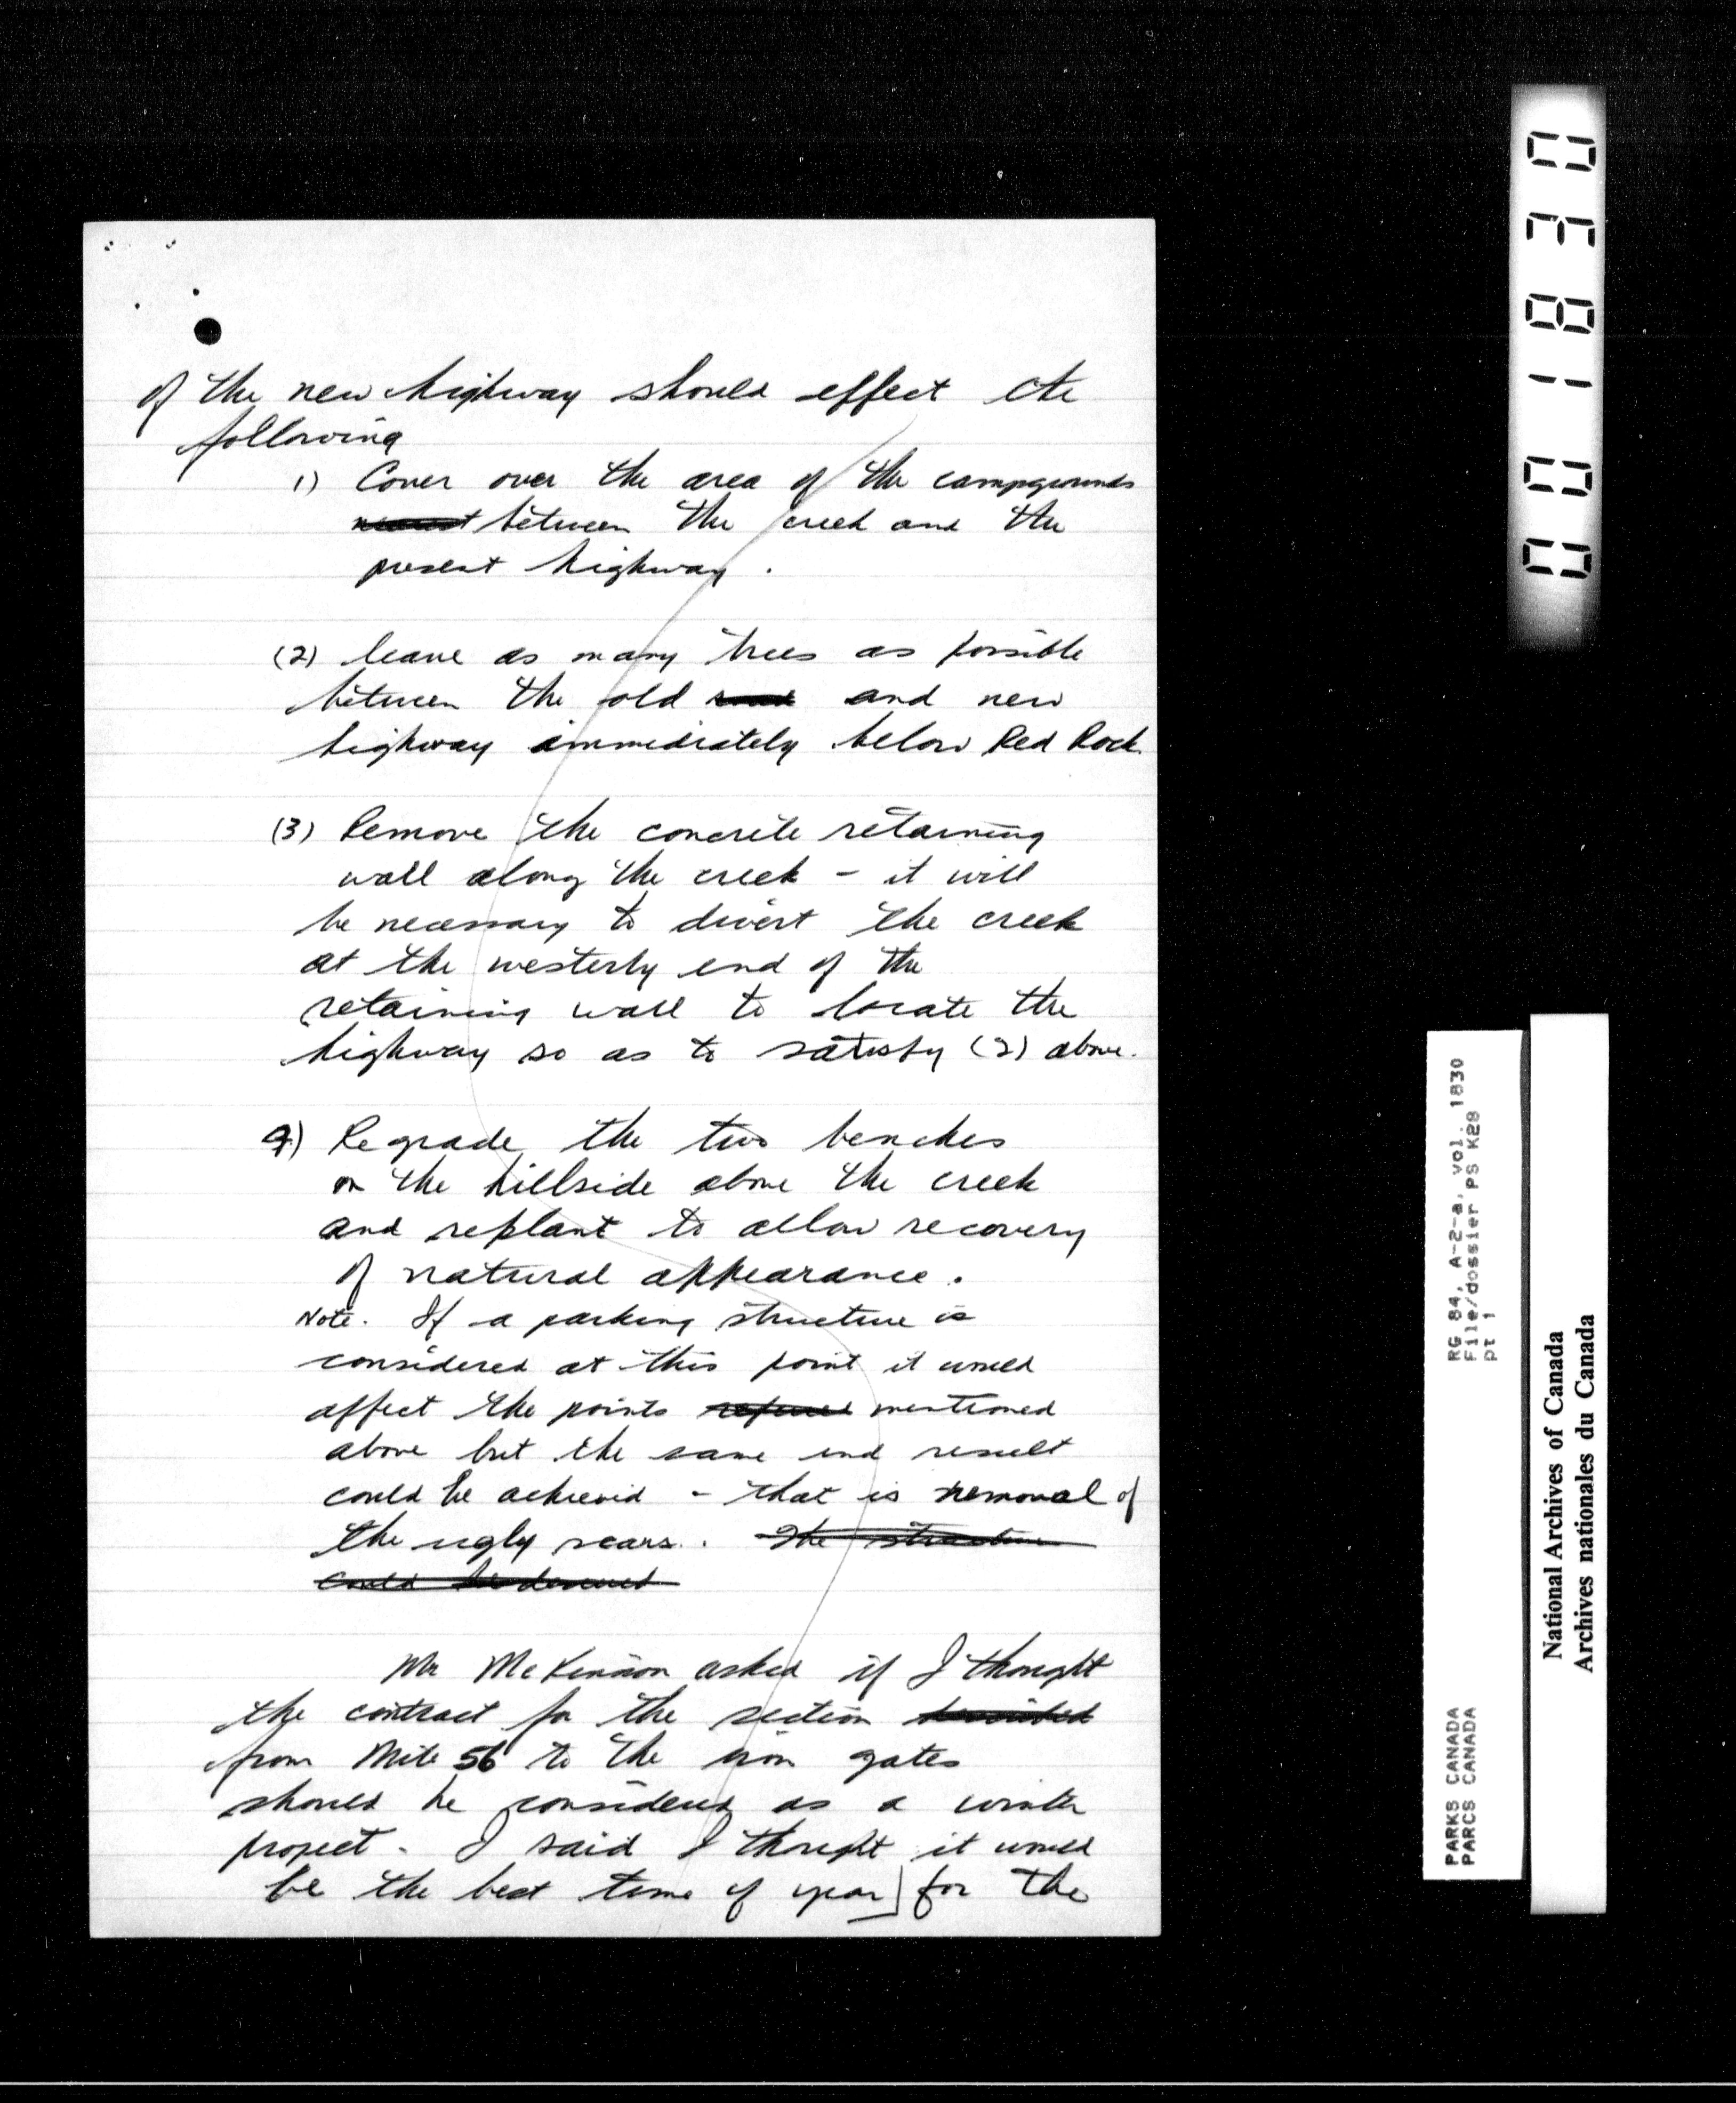 of the new highway should effect the
following
1) Cover over the area of the campgrounds
between the creek and the
present highway.
(2) leave as many trees as possible
between the old road and new
highway immediately below Red Rock
(3) Remove the concrete retaining
wall along the creek - it will
be necessary to divert the creek
at the westerly end of the
retaining wall to locate the
highway so as to satisfy (2) above.
4) Regrade the two benches
on the hillside above the creek
and replant to allow recovery
of natural appearance.
Note. If a parking structure is
considered at this point it would
affect the points refered mentioned
above but the same end result
could be achieved - that is removal of
the ugly scars. The structure
could be
Mr McKinnon asked if I thought
the contract for the section
from Mile 56 to the iron gates
should be considered as a winter
project - I said I thought it would
be the best time of year] for the
001830
RG 84, A-2-a, vol. 1830
File/dossier PS K28
pt 1
PARKS CANADA
PARCS CANADA
National Archives of Canada
Archives nationales du Canada